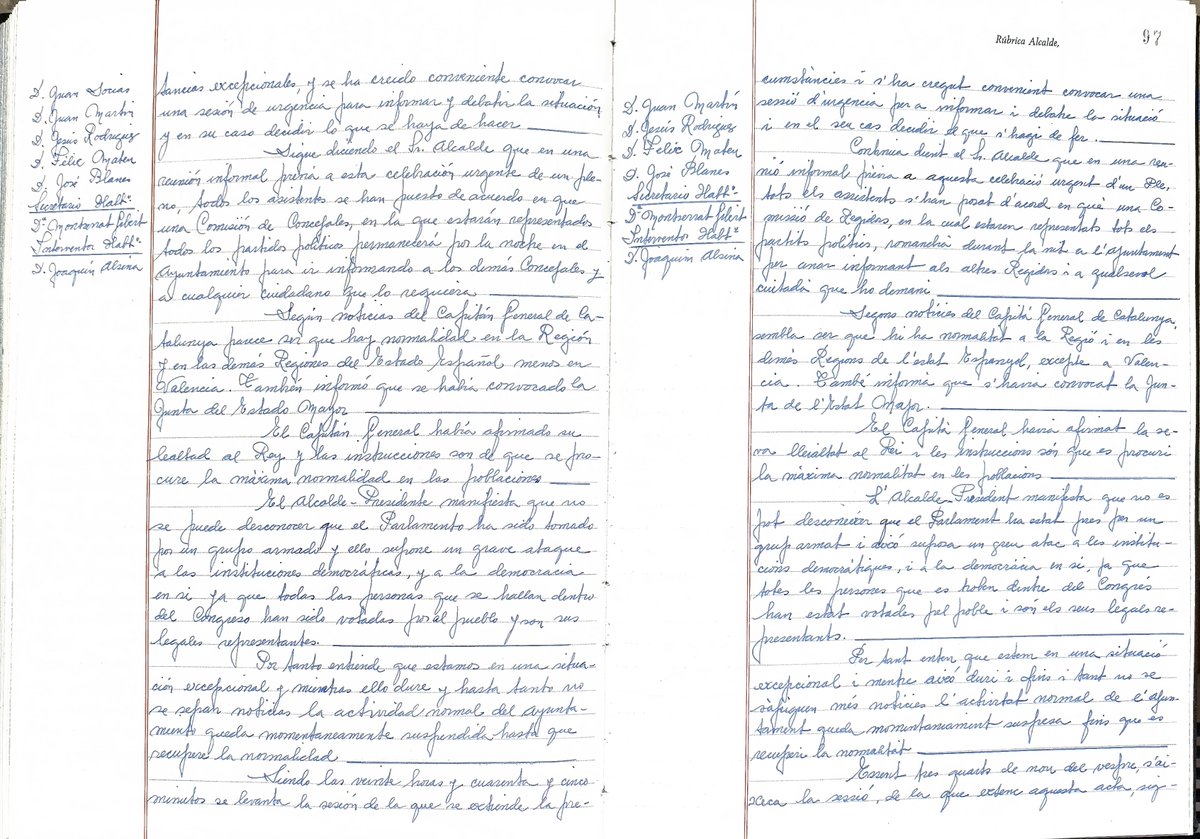 D. Juan Socias
D. Juan Martín
D. Jesús Rodríguez
D. Fèlic Mateu
D. José Blanes
Secretario Habtº
Dª Montserrat Gibert
Interventor Habtº
D. Joaquín Alsina
tancias excepcionales, y se ha creido conveniente convocar
una sesión de urgencia para informar y debatir la situación
y en su caso decidir lo que se haya de hacer
Sigue diciendo el Sr. Alcalde que en una
reunión informal previa a esta celebración urgente de un ple-
no, todos los asistentes se han puesto de acuerdo en que
una Comisión de Concejales, en la que estarán representados
todos los partidos políticos permanecerá por la noche en el
Ayuntamiento para ir informando a los demás Concejales y
a cualquier ciudadano que lo requiera
Según noticias del Capitán General de Ca-
talunya parece ser que hay normalidad en la Región
y en las demás Regiones del Estado Español menos en
Valencia. También informó que se había convocado la
Junta del Estado Mayor
El Capitán General había afirmado su
lealtad al Rey y las instrucciones son de que se pro-
cure la màxima normalidad en las poblaciones
El Alcalde-Presidente manifiesta que no
se puede desconocer que el Parlamento ha sido tomado
por un grupo armado y ello supone un grave ataque
a las instituciones democráticas, y a la democracia
en sí ya que todas las personas que se hallan dentro
del Congreso han sido votadas por el pueblo y son sus
legales representantes.
Por tanto entiende que estamos en una situa-
ción excepcional y mientras ello dure y hasta tanto no
se sepan noticias la actividad normal del Ayunta-
miento queda momentaneamente suspendida hasta que
recupere la normalidad
Siendo las veinte horas y cuarenta y cinco
minutos se levanta la sesión de la que se extiende la pre-
Rúbrica Alcalde,
97
D. Juan Martín
D. Jesús Rodríguez
D. Fèlic Mateu
D. José Blanes
Secretario Habtº
Dª Montserrat Gibert
Interventor Habtº
D. Joaquín Alsina
cumstàncies i s'ha cregut convenient convocar una
sessió d'urgencia per a informar i debatre la situació
i en el seu cas decidir el que s'hagi de fer.
Continua dient el Sr. Alcalde que en una reu-
nió informal prèvia a aquesta celebració urgent d'un Ple,
tots els assistents s'han posat d'acord en què una Co-
missió de Regidors, en la cual estaren representats tots els
partits polítics, romandrà durant la nit a l'Ajuntament
per anar informant als altres Regidors i a qualsevol
ciutadà que ho demani
Segons notícies del Capità General de Catalunya,
sembla ser que hi ha normalitat a la Regió i en les
demés Regions de l'estat Espanyol, excepte a Valen-
cia. També informà que s'havia convocat la Jun-
ta de l'Estat Major.
El Capità General havia afirmat la se-
va lleialtat al Rei i les instruccions són que es procuri
la màxima normalitat en les poblacions
L'Alcalde-President manifesta que no es
pot desconeixer que el Parlament ha estat pres per un
grup armat i això suposa un greu atac a les institu-
cions democràtiques, i a la democràcia en sí, ja que
totes les persones que es troben dintre del Congrés
han estat votades pel poble i son els seus legals re-
presentants.
Per tant enten que estem en una situació
excepcional i mentre això duri i fins i tant no se
sàpiguen més notícies l'activitat normal de l'Ajun-
tament queda momentaniament suspesa fins que es
recuperi la normalitat
Essent tres quarts de nou del vespre, s'ai-
xeca la sessió, de la que extenc aquesta acta, sig-